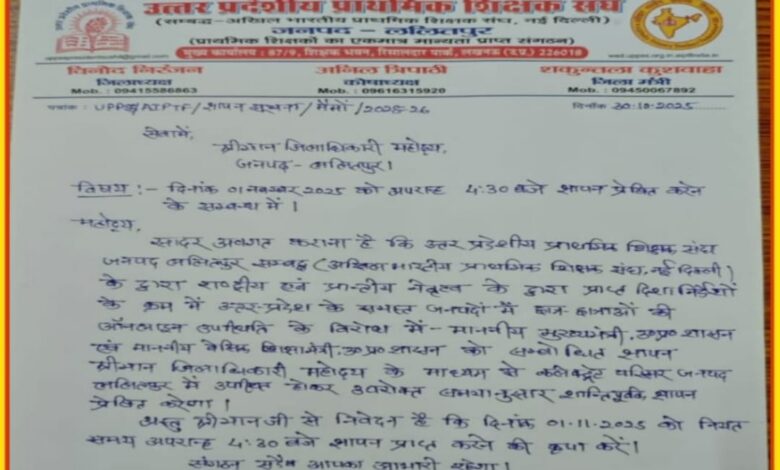 उत्तर प्रदेशीय प्राथमिक शिक्षक संघ
(सम्बद्ध-अखिल भारतीय प्राथमिक शिक्षक संघ, नई दिल्ली)
जनपद – ललितपुर
(प्राथमिक शिक्षकों का एकमात्र मान्यता प्राप्त संगठन)
मुख्य कार्यालय : 87/9, शिक्षक भवन, रिसालदार पार्क, लखनऊ (उ.प्र.) 226018
विनोद निरंजन
जिलाध्यक्ष
Mob. : 09415586863
अनिल त्रिपाठी
कोषाध्यक्ष
Mob. : 09616315920
शकुन्तला कुशवाहा
जिला मंत्री
Mob. : 09450067892
पत्रांक : UPPSS/AIPTF/ज्ञापन सूचना/मैमो/2025-26
दिनांक 30-10-2025
सेवा में,
श्रीमान जिलाधिकारी महोदय,
जनपद- ललितपुर।
विषय :- दिनांक 01 नवम्बर 2025 को अपराह्न 4:30 बजे ज्ञापन प्रेषित करने
के सम्बन्ध में।
महोदय,
सादर अवगत कराना है कि उत्तर प्रदेशीय प्राथमिक शिक्षक संघ
जनपद ललितपुर सम्बद्ध (अखिल भारतीय प्राथमिक शिक्षक संघ, नई दिल्ली)
के द्वारा राष्ट्रीय एवं प्रान्तीय नेतृत्व के द्वारा प्राप्त दिशा निर्देशों
के क्रम में उत्तर-प्रदेश के समस्त जनपदों में छात्र-छात्राओं की
ऑनलाइन उपस्थिति के विरोध में - माननीय मुख्यमंत्री, उ०प्र० शासन
एवं माननीय बेसिक शिक्षामंत्री, उ०प्र० शासन को सम्बोधित ज्ञापन
श्रीमान जिलाधिकारी महोदय के माध्यम से कलेक्ट्रेट परिसर जनपद
ललितपुर में उपस्थित होकर उपरोक्त समयानुसार शान्तिपूर्वक ज्ञापन
प्रेषित करेगा।
अस्तु श्रीमान जी से निवेदन है कि दिनांक 01-11-2025 को नियत
समय अपराह्न 4:30 बजे ज्ञापन प्राप्त करने की कृपा करें।
संगठन सदैव आपका आभारी रहेगा।